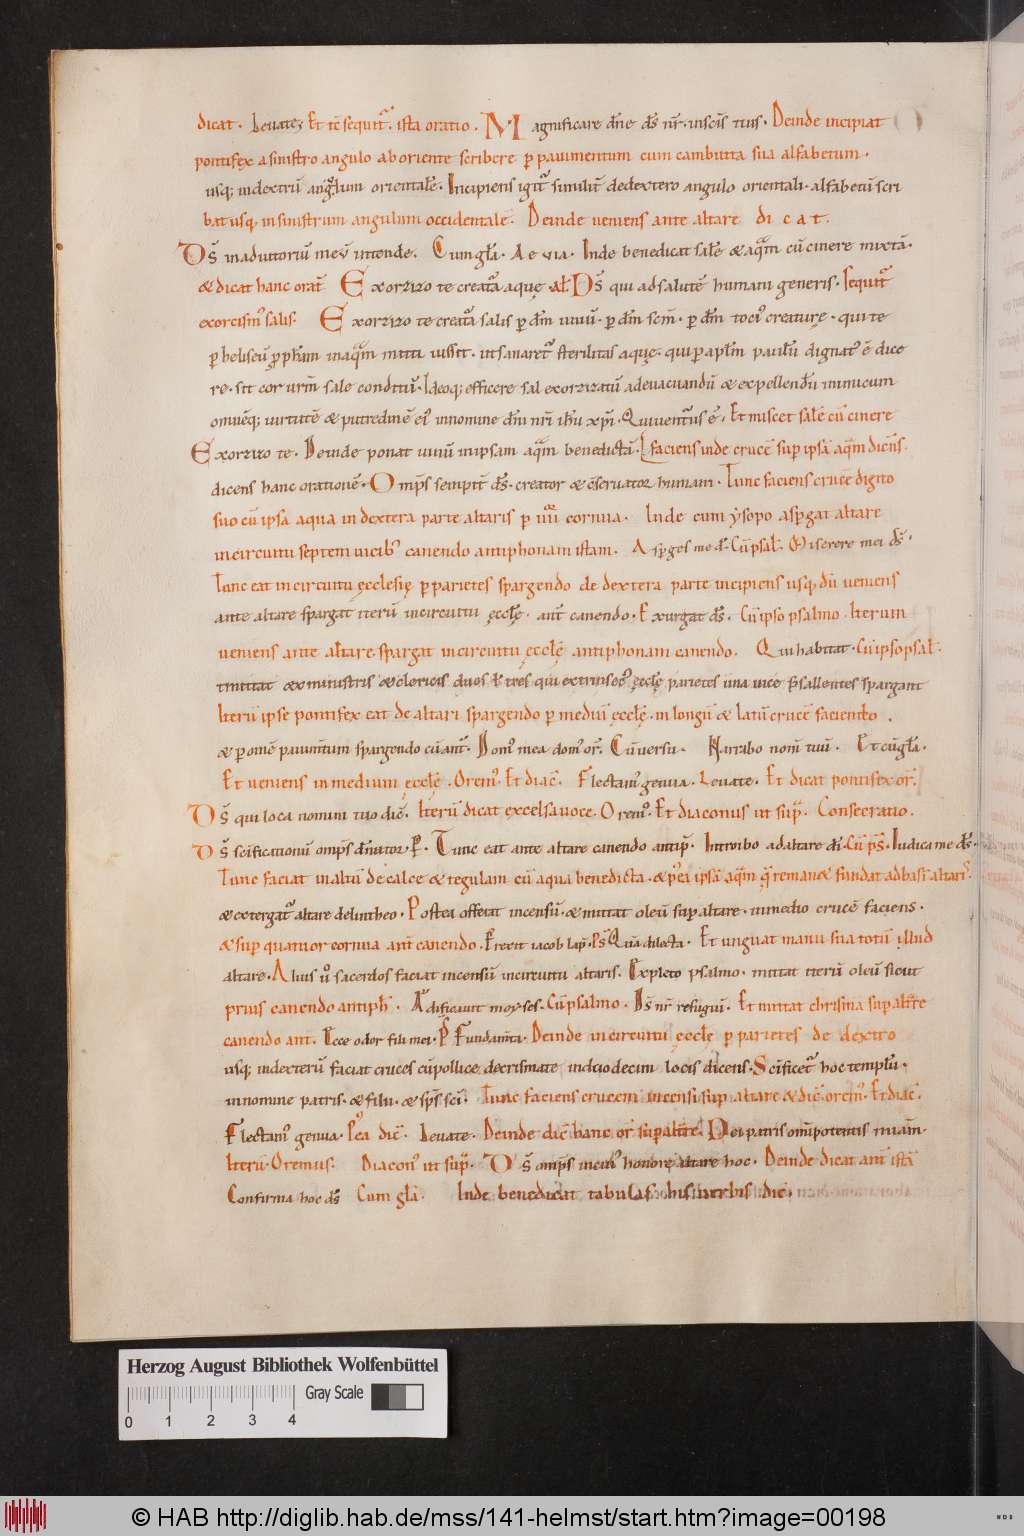 dicat. Leuate; Et tc̄ sequit᷑. ista oratio. Magnificare dn̄e ds̄ nr̄. insc̄is tuis. Deinde incipiat
pontifex asinistro angulo aboriente scribere p̱ pauimentum cum cambutta sua alfabetum.
usq; indextrū angulum orientale. Incipiens igit᷑ similit̄ dedextero angulo orientali. alfabetū scri
bat usq; insinistrum angulum occidentale. Deinde ueniens ante altare dicat.
Ds̄ inadiutoriū meū intende. Cum gl̄a. Aeuia. Inde benedicat salē & aquā cū cinere mixtā.
& dicat hanc orat̄. Exorzizo te creat᷑a aquę. al̄. Ds̄ qui adsalutē humani generis. Sequit᷑
exorcism᷒ salis. Exorzizo te creat᷑a salis p̱ dm̄ uiuū. p̱ dm̄ sc̄m. p̱ dm̄ toci᷒ creaturę. qui te
p̱ heliseū p̱ph̄am inaquā mitti iussit. ut sanaret᷑ sterilitas aquę. qui p̱ apl̄m paulū dignat᷒ ē dice
re. sit cor urm̄ sale conditū. Idcoq; efficere sal exorzizatū adeuacuandū & expellendū inimicum
omnēq; uirtutē & putredinē ei᷒ innomine dn̄i nr̄i ih̄u xp̄i. Qui uentur᷒ ē. Et misceat salē cū cinere
Exorzizo te. Deinde ponat uinū inipsam aquā benedictā. & faciens inde crucē sup̱ ipsā aquā dicens.
dicens hanc orationē. Omp̄s sempit̄ ds̄. creator & c̄seruator humani. Tunc faciens crucē digito
suo cū ipsa aqua in dextera parte altaris p̱ iiii cornua. Inde cum ysopo asp̱gat altare
incircuitu septem uicib᷒ canendo antiphonam istam. Asp̱ges me d̄. Cū psal̄. Miserere mei ds̄.
Tunc eat incircuitu ęcclesię p̱ parietes spargendo de dextera parte incipiens usq; dū ueniens
ante altare spargat iterū incircuitu ęccl̄ę. ant̄ canendo. Exurgat ds̄. Cū ipso psalmo. Iterum
ueniens ante altare. spargat incircuitu ęccl̄ę antiphonam canendo. Qui habitat. Cū ipso psal̄.
mittat exministris & clericis duos t̄ tres qui extrinsec᷒ ęccl̄ę parietes una uice psallentes spargant
Iterū ipse pontifex eat de altari spargendo p̱ mediū ęccl̄ę. in longū & latū crucē faciendo.
& p̱ omnē pauimtum spargendo cū ant̄. Dom᷒ mea dom᷒ or̄. Cū uersu. Narrabo nom̄ tuū. Et cū gl̄a.
Et ueniens inmedium ęccl̄ę. Orem᷒. Et diac̄. Flectam᷒ genua. Leuate. Et dicat pontifex or̄.
Ds̄ qui loca nomini tuo dic̄. Iterū dicat excelsa uoce. Orem᷒. Et diaconus ut sup̄. Consecratio.
Ds̄ sc̄ificationū omp̄s dn̄ator. P̄. Tunc eat ante altare canendo antip̄. Introibo ad altare dī. Cū ps̄. Iudica me ds̄.
Tunc faciat maltū de calce & tegulam cū aqua benedicta. & p̱ea ipsā aquā q̄ remanet fundat adbasī altaris.
& extergat᷑ altare delintheo. Postea offerat incensū. & mittat oleū sup̱ altare. inmedio crucē faciens.
& sup̱ quatuor cornua ant̄ canendo. Erexit iacob lap̄. Ps̄ Quā dilecta. Et unguat manu sua totū illud
altare. Alius ū sacerdos faciat incensū incircuitu altaris. Expleto psalmo. mittat iterū oleū sicut
prius canendo antiph̄. Ædificauit moyses. Cū psalmo. Ds̄ nr̄ refugiū. Et mittat chrisma sup̱ altare
canendo ant̄. Ecce odor filii mei. Ps̄ Fundam̄ta. Deinde incircuitu ęccl̄ę p̱ parietes de dextro
usq; indexterū faciat cruces cū pollice decrismate induodecim locis dicens. Sc̄ificet᷑ hoc templū.
innomine patris. & filii. & sp̄s sc̄i. Tunc faciens crucem incensi sup̱ altare & dic̄. orem᷒. Et diac̄.
Flectam᷒ genua. Pea dic̄. Leuate. Deinde dic̄ hanc or̄ sup̱ altare. Dei patris omip̄otentis mīam.
Iterū. Oremus. Diacon᷒ ut sup̄. Ds̄ omp̄s incui᷒ honore altare hoc. Deinde dicat ant̄ istā
Confirma hoc ds̄ Cum gl̄a. Inde benedicat tabulas his uerbis dic̄.
Herzog August Bibliothek Wolfenbüttel
Gray Scale
0 1 2 3 4
© HAB http://diglib.hab.de/mss/141-helmst/start.htm?image=00198